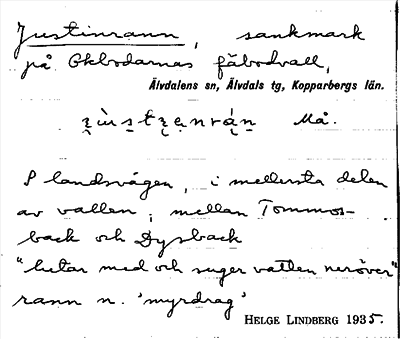 Justinrann, sankmark
på Oklbodarnas fäbodvall,
Älvdalens sn, Älvdals tg, Kopparbergs län.
Må.
S landsvägen, i mellersta delen
av vallen, mellan Tommos-
back och Dysback
"lutar med och suger vatten neröver"
rann n. 'myrdrag'
HELGE LINDBERG 1935.